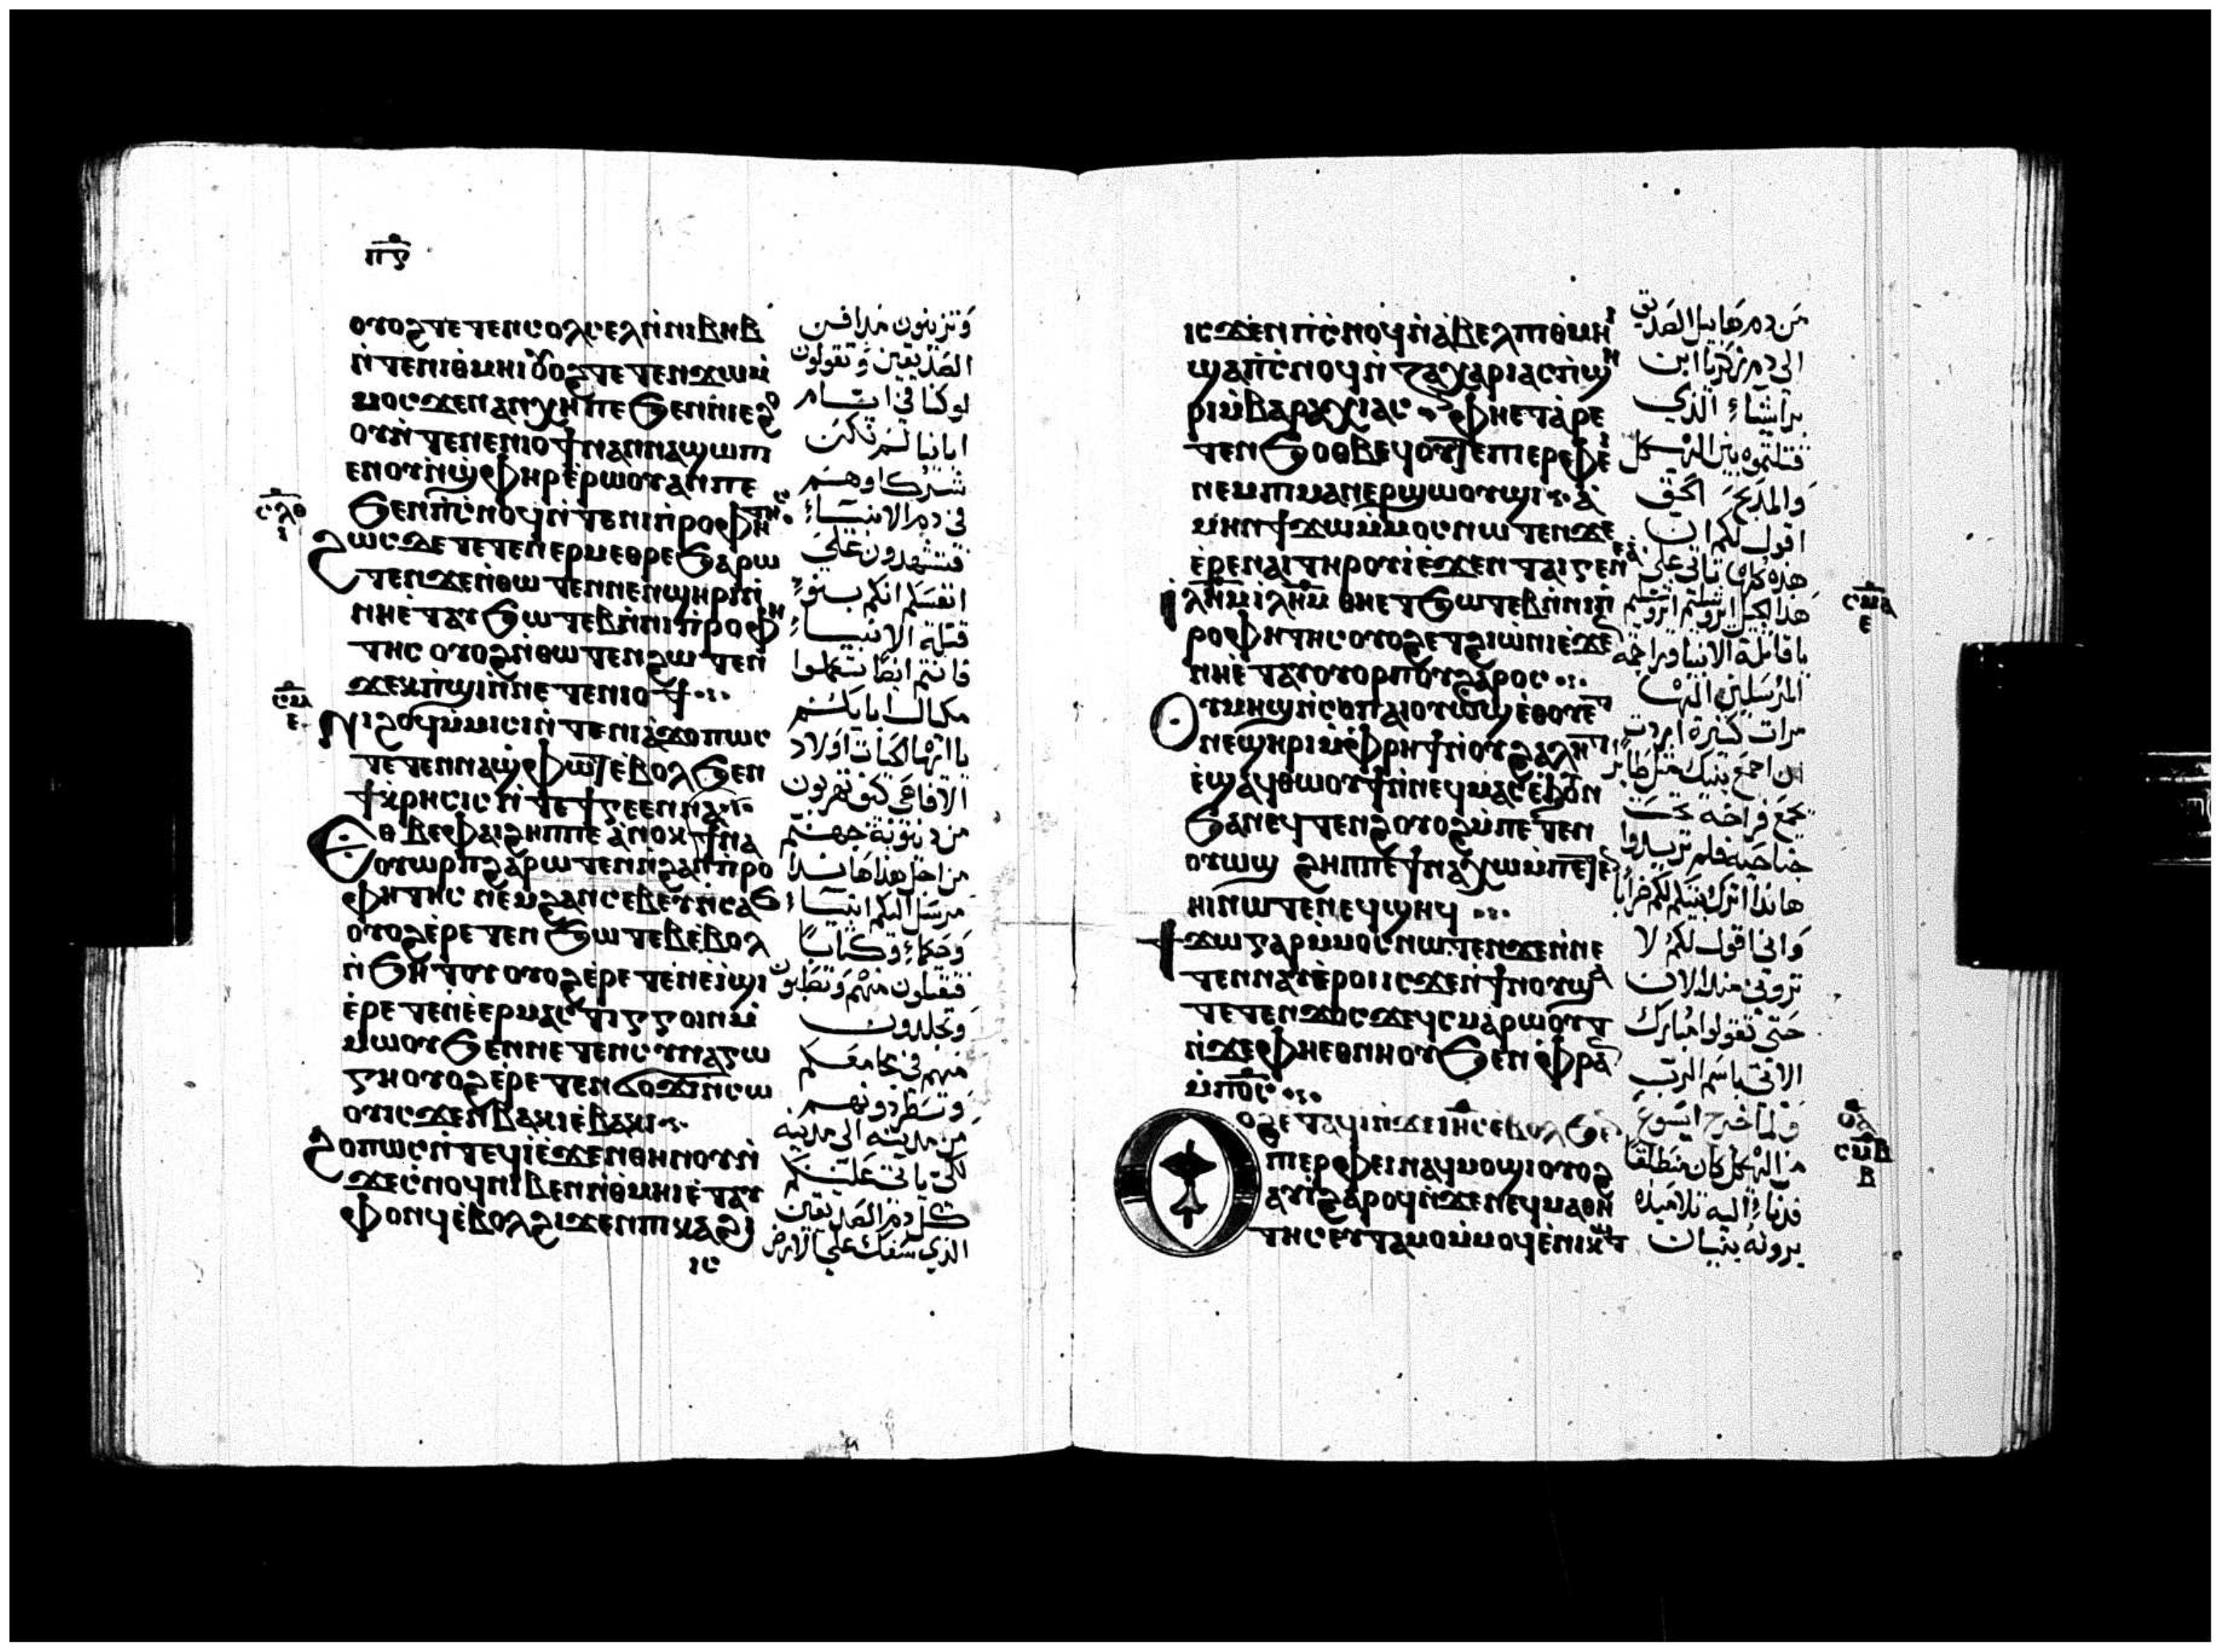 ⲡⲋ
ⲟⲩⲟϩ ⲧⲉⲧⲉⲛⲥⲟⲗⲥⲉⲗ ⲛ̀ⲛⲓⲃⲏⲃ
ⲛ̀ⲧⲉⲛⲓⲑⲙⲏⲓ ⲟⲩⲟϩ ⲧⲉⲧⲉⲛϫⲱⲙ̀
ⲙⲟⲥ ϫⲉⲛⲁⲛⲭⲏ ⲡⲉ ϧⲉⲛⲛⲓⲉϩⲟ
ⲟⲩ ⲛ̀ⲧⲉⲛⲉⲛⲓⲟϯ ⲛⲁⲛⲛⲁϣⲱⲡⲓ
ⲉⲛⲟⲓ ⲛ̀ϣⲫⲏⲣ ⲉ̀ⲣⲱⲟⲩ ⲁⲛ ⲡⲉ
ϧⲉⲛⲡ̀ⲥⲛⲟϥ ⲛ̀ⲧⲉⲛⲓⲡ̀ⲣⲟⲫⲏⲧⲏⲥ
ϩⲱⲥⲇⲉ ⲧⲉⲧⲉⲛⲉⲣⲙⲉⲑⲣⲉ ϧⲁⲣⲱ
ⲧⲉⲛ ϫⲉⲛ̀ⲑⲱⲧⲉⲛ ⲛⲉⲛϣⲏⲣⲓ ⲛ̀
ⲛⲏⲉ̀ⲧⲁⲩϧⲱⲧⲉⲃ ⲛ̀ⲛⲓⲡ̀ⲣⲟⲫⲏ
ⲧⲏⲥ ⲟⲩⲟϩ ⲛ̀ⲑⲱⲧⲉⲛ ϩⲱⲧⲉⲛ
ϫⲉⲕⲡ̀ϣⲓ ⲛ̀ⲛⲉⲧⲉⲛⲓⲟϯ
ⲛⲓϩⲟϥ ⲙ̀ⲙⲓⲥⲓ ⲛ̀ⲧⲉⲛⲓⲁ̀ϫⲱ ⲡⲱⲥ
ⲧⲉⲧⲉⲛⲛⲁϣⲫⲱⲧ ⲉ̀ⲃⲟⲗ ϧⲉⲛ
ϯⲕⲣⲏⲥⲓⲥ ⲛ̀ⲧⲉϯⲅⲉⲉⲛⲛⲁ
ⲉⲑⲃⲉⲫⲁⲓ ϩⲏⲡⲡⲉ ⲁⲛⲟⲕ ϯⲛⲁ
ⲟⲩⲱⲣⲡ ϩⲁⲣⲱⲧⲉⲛ ⲛ̀ϩⲁⲛⲡ̀ⲣⲟ
ⲫⲏⲧⲏⲥ ⲛⲉⲙϩⲁⲛⲥⲁⲃⲉⲩ ⲛ̀ⲥⲁϧ
ⲟⲩⲟϩ ⲉ̀ⲣⲉⲧⲉⲛϧⲱⲧⲉⲃ ⲉ̀ⲃⲟⲗ
ⲛ̀ϧⲏⲧⲟⲩ ⲟⲩⲟϩ ⲉ̀ⲣⲉⲧⲉⲛⲉ̀ⲓϣⲓ
ⲉ̀ⲣⲉⲧⲉⲛⲉ̀ⲉⲣⲙⲁⲥⲧⲓⲅⲅⲟⲓⲛ ⲙ̀
ⲙⲱⲟⲩ ϧⲉⲛⲛⲉⲧⲉⲛⲥⲩⲛⲁⲅⲱ
ⲅⲏ ⲟⲩⲟϩ ⲉ̀ⲣⲉⲧⲉⲛϭⲟϫⲓ ⲛ̀ⲥⲱ
ⲟⲩ ⲓⲥϫⲉⲛⲃⲁⲕⲓ ⲉ̀ⲃⲁⲕⲓ
ϩⲟⲡⲱⲥ ⲛ̀ⲧⲉϥⲓ̀ ⲉ̀ϫⲉⲛⲑⲏⲛⲟⲩ ⲛ̀
ϫⲉⲥⲛⲟϥ ⲛⲓⲃⲉⲛ ⲛ̀ⲑⲙⲏⲓ ⲉ̀ⲧⲁⲩ
ⲫⲟⲛϥ ⲉ̀ⲃⲟⲗ ϩⲓϫⲉⲛⲡⲓⲕⲁϩⲓ
ⲓⲥ
ⲥⲗⲑ
ⲥⲙ
ⲉ
وتزينون مدافن
الصديقين وتقولون
لو كنا في ايام
ابائنا لم نكن
شركاوهم
في دم الانبياء
فتشهدون على
انفسكم انكم بنو
قتلة الانبياء
فانتم ايضا تكملوا
مكيال ابايكم
يا ايها الحيات اولاد
الافاعي كيف تهربون
من دينونة جهنم
من اجل هذا هانذا
مرسل اليكم انبياء
وحكماء وكتابا
فتقتلون منهم وتصلبون
وتجلدون
منهم في مجامعكم
وتطردونهم
من مدينة الى مدينة
لكي ياتي عليكم
كل دم الصديقين
الذي سفك على الارض
ⲓⲥϫⲉⲛⲡ̀ⲥⲛⲟϥ ⲛ̀ⲁ̀ⲃⲉⲗ ⲡⲓⲑⲙⲏⲓ
ϣⲁⲡ̀ⲥⲛⲟϥ ⲛ̀ⲍⲁⲭⲁⲣⲓⲁⲥ ⲡ̀ϣⲏ
ⲣⲓ ⲙ̀ⲃⲁⲣⲁⲭⲓⲁⲥ ⲫⲏⲉⲧⲁⲣⲉ
ⲧⲉⲛϧⲟⲑⲃⲉϥ ⲟⲩⲧⲉ ⲡⲓⲉⲣⲫⲉⲓ
ⲛⲉⲙⲡⲓⲙⲁⲛⲉⲣϣⲱⲟⲩϣⲓ ⲁ̀
ⲙⲏⲛ ϯϫⲱⲙ̀ⲙⲟⲥ ⲛⲱⲧⲉⲛ ϫⲉ
ⲉ̀ⲣⲉⲛⲁⲓ ⲧⲏⲣⲟⲩ ⲓ̀ ⲉ̀ϫⲉⲛⲧⲁⲓⲅⲉⲛⲉⲁ̀
ⲓⲗⲏⲙ ⲓⲗⲏⲙ ⲑⲏⲉⲧϧⲱⲧⲉⲃ ⲛ̀ⲛⲓⲡ̀
ⲣⲟⲫⲏⲧⲏⲥ ⲟⲩⲟϩ ⲉⲧϩⲓⲱ̀ⲛⲓ ⲉ̀ϫⲉ
ⲛⲏⲉ̀ⲧⲁⲩⲟⲩⲟⲣⲡⲟⲩ ϩⲁⲣⲟⲥ
ⲟⲩⲙⲏϣ ⲛ̀ⲥⲟⲡ ⲁⲓⲟⲩⲱϣ ⲉ̀ⲑⲟⲩⲉⲧ
ⲛⲉϣⲏⲣⲓ ⲙ̀ⲫⲣⲏϯ ⲛ̀ⲟⲩϩⲁⲗⲏⲧ
ⲉ̀ϣⲁϥⲑⲱⲟⲩϯ ⲛ̀ⲛⲉϥⲙⲁⲥ ⲉ̀ϧⲟⲩⲛ
ϧⲁⲛⲉϥⲧⲉⲛϩ ⲟⲩⲟϩ ⲙ̀ⲡⲉⲧⲉⲛ
ⲟⲩⲱϣ ϩⲏⲡⲡⲉ ϯⲛⲁⲭⲱ ⲙ̀ⲡⲉⲧⲉⲛ
ⲏⲓ ⲛⲱⲧⲉⲛ ⲉϥϣⲏϥ
ϯϫⲱ ⲅⲁⲣ ⲙ̀ⲙⲟⲥ ⲛⲱⲧⲉⲛ ϫⲉⲛ̀ⲛⲉ
ⲧⲉⲛⲛⲁⲩ ⲉ̀ⲣⲟⲓ ⲓⲥϫⲉⲛϯⲛⲟⲩ ϣⲁ
ⲧⲉⲧⲉⲛϫⲟⲥ ϫⲉϥⲥⲙⲁⲣⲱⲟⲩⲧ
ⲛ̀ϫⲉⲫⲏⲉⲑⲛⲏⲟⲩ ϧⲉⲛⲫⲣⲁⲛ
ⲙ̀ⲡⲟ̅ⲥ̅
ⲟⲩⲟϩ ⲉ̀ⲧⲁϥⲓ̀ ⲛ̀ϫⲉⲓⲏⲥ ⲉ̀ⲃⲟⲗ ϧⲉⲛ
ⲡⲓⲉⲣⲫⲉⲓ ⲛⲁϥⲙⲟϣⲓ ⲟⲩⲟϩ
ⲁⲩⲓ̀ ϩⲁⲣⲟϥ ⲛ̀ϫⲉⲛⲉϥⲙⲁⲑⲏ
ⲧⲏⲥ ⲉⲩⲧⲁⲙⲟ ⲙ̀ⲙⲟϥ ⲉ̀ⲛⲓⲕⲱⲧ
من دم هابيل الصديق
الى دم زكريا ابن
براشياء الذي
قتلتموه بين الهيكل
والمذبح الحق
اقول لكم ان
هذه كلها تاتي على
هذا الجيل
يا قاتلة الانبيا وراجمة
المرسلين اليها
مرات كثيرة اردت
ان اجمع بنيك مثل طاير
يجمع فراخه تحت
جناحيه فلم تريدوا
هانذا اترك بيتكم لكم خرابا
واني اقول لكم لا
تروني منذ الان
حتى تقولوا مبارك
الاتي باسم الرب
ولما خرج ايسوع
من الهيكل كان منطلقا
فدنا اليه تلاميذه
يرونه بنيان
ⲥⲙⲁ
ⲉ
ⲟⲁ
ⲥⲙⲃ
ⲃ